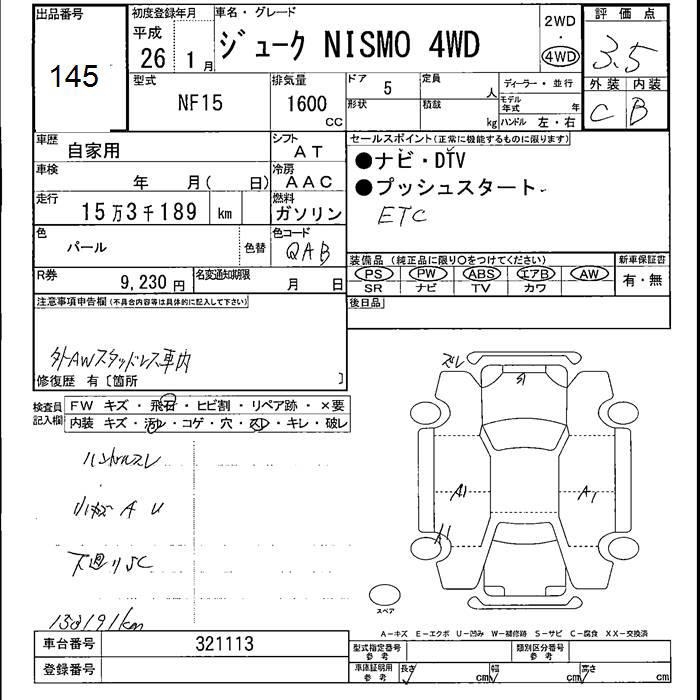 出品番号 初度登録年月 車名・グレード 2WD 評価点
145 平成 26年 1月 ジューク NISMO 4WD ・ 4WD 3.5
型式 NF15 排気量 1600 CC ドア 5 定員 人 ディーラー・並行 外装 内装
形状 積載 kg モデル年式 年 ハンドル 左・右 C B
車歴 自家用 シフト AT セールスポイント(正常に機能するものに限ります)
車検 年 月( 日) 冷房 AAC ●ナビ・DTV
走行 15万3千189 km 燃料 ガソリン ●プッシュスタート
ETC
色 パール 色替 色コード QAB
装備品(純正品に限り〇をつけてください) 新車保証書
PS PW ABS エアB AW 有・無
SR ナビ TV カワ
R券 9,230円 名変通知期限 月 日
後日品
注意事項申告欄(不具合内容等は具体的に記入して下さい)
外AWスタッドレス車内
修復歴 有〔箇所 〕
検査員記入欄 FW キズ・飛石・ヒビ割・リペア跡・×要
内装 キズ・汚レ・コゲ・穴・スレ・キレ・破レ
ハンドルスレ
小キズ A U
下廻りSC
153191km
ズレ
A1 A1
スペア
A-キズ E-エクボ U-凹み W-補修跡 S-サビ C-腐食 XX-交換済
車台番号 321113
登録番号
型式指定番号 参考 類別区分番号 参考
車体証明用 参考 長さ cm 幅 cm 高さ cm